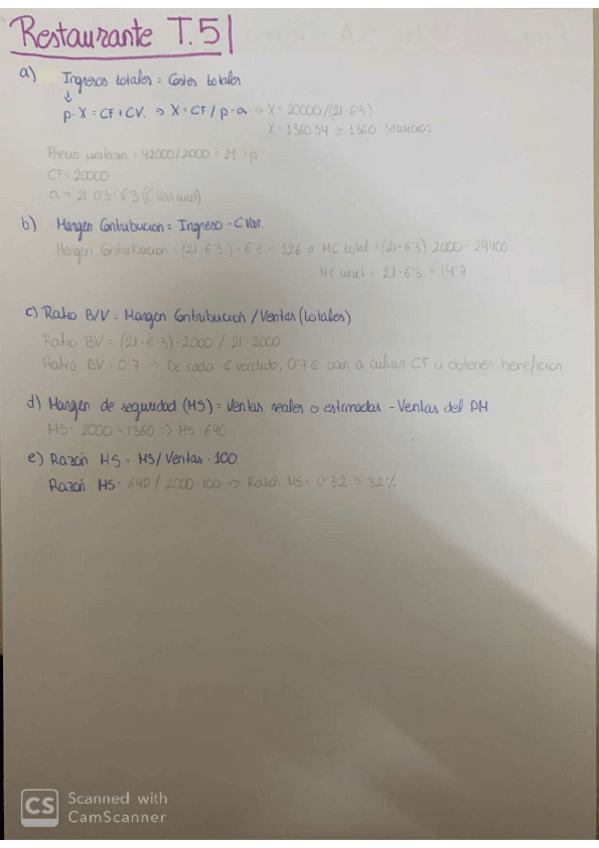 Restaurante T.5
a) Ingresos totales = Costes totales
↓
p·X = CF + CV. ⇒ X = CF / p-a ⇒ X = 20000/(21-6'3)
X = 1360'54 ≃ 1360 servicios
Precio unitario = 42000/2000 = 21 → p
CF = 20000
a = 21·0'3 = 6'3 (C Var unit)
b) Margen Contribucion = Ingreso - C Var.
Margen Contribucion = (21-6'3) - 6'3 = 12'6 o MC total = (21-6'3)·2000 = 29400
MC unit = 21-6'3 = 14'7
c) Ratio B/V = Margen Contribucion / Ventas (totales)
Ratio BV = (21-6'3)·2000 / 21·2000
Ratio BV = 0'7 → De cada € vendido, 0'7€ van a cubrir CF u obtener beneficios
d) Margen de seguridad (MS) = Ventas reales o estimadas - Ventas del PM
MS = 2000 - 1360 ⇒ MS = 640
e) Razón MS = MS / Ventas · 100
Razón MS = 640 / 2000 · 100 → Razón MS = 0'32 → 32%
CS Scanned with
CamScanner